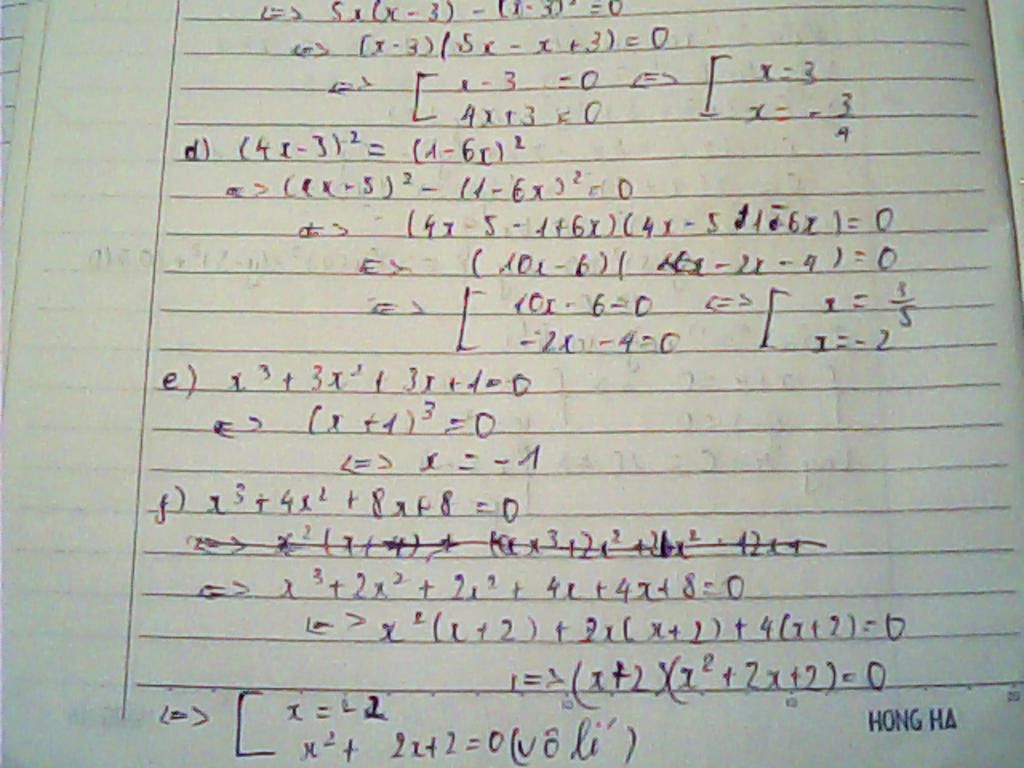 <=> 5x(x-3) - (x-3)² = 0
<=> (x-3)(5x - x + 3) = 0
<=> [ x - 3 = 0 <=> [ x = 3
4x + 3 = 0 x = - 3/4
d) (4x-3)² = (1-6x)²
<=> (4x-5)² - (1-6x)² = 0
<=> (4x-5-1+6x)(4x-5+1-6x) = 0
<=> (10x-6)(-2x-4) = 0
<=> [ 10x - 6 = 0 <=> [ x = 3/5
-2x - 4 = 0 x = -2
e) x³ + 3x² + 3x + 1 = 0
<=> (x+1)³ = 0
<=> x = -1
f) x³ + 4x² + 8x + 8 = 0
<=> x³ + 2x² + 2x² + 4x + 4x + 8 = 0
<=> x²(x+2) + 2x(x+2) + 4(x+2) = 0
<=> (x+2)(x² + 2x + 2) = 0
<=> [ x = -2
x² + 2x + 2 = 0 (vô lí)
HONG HA